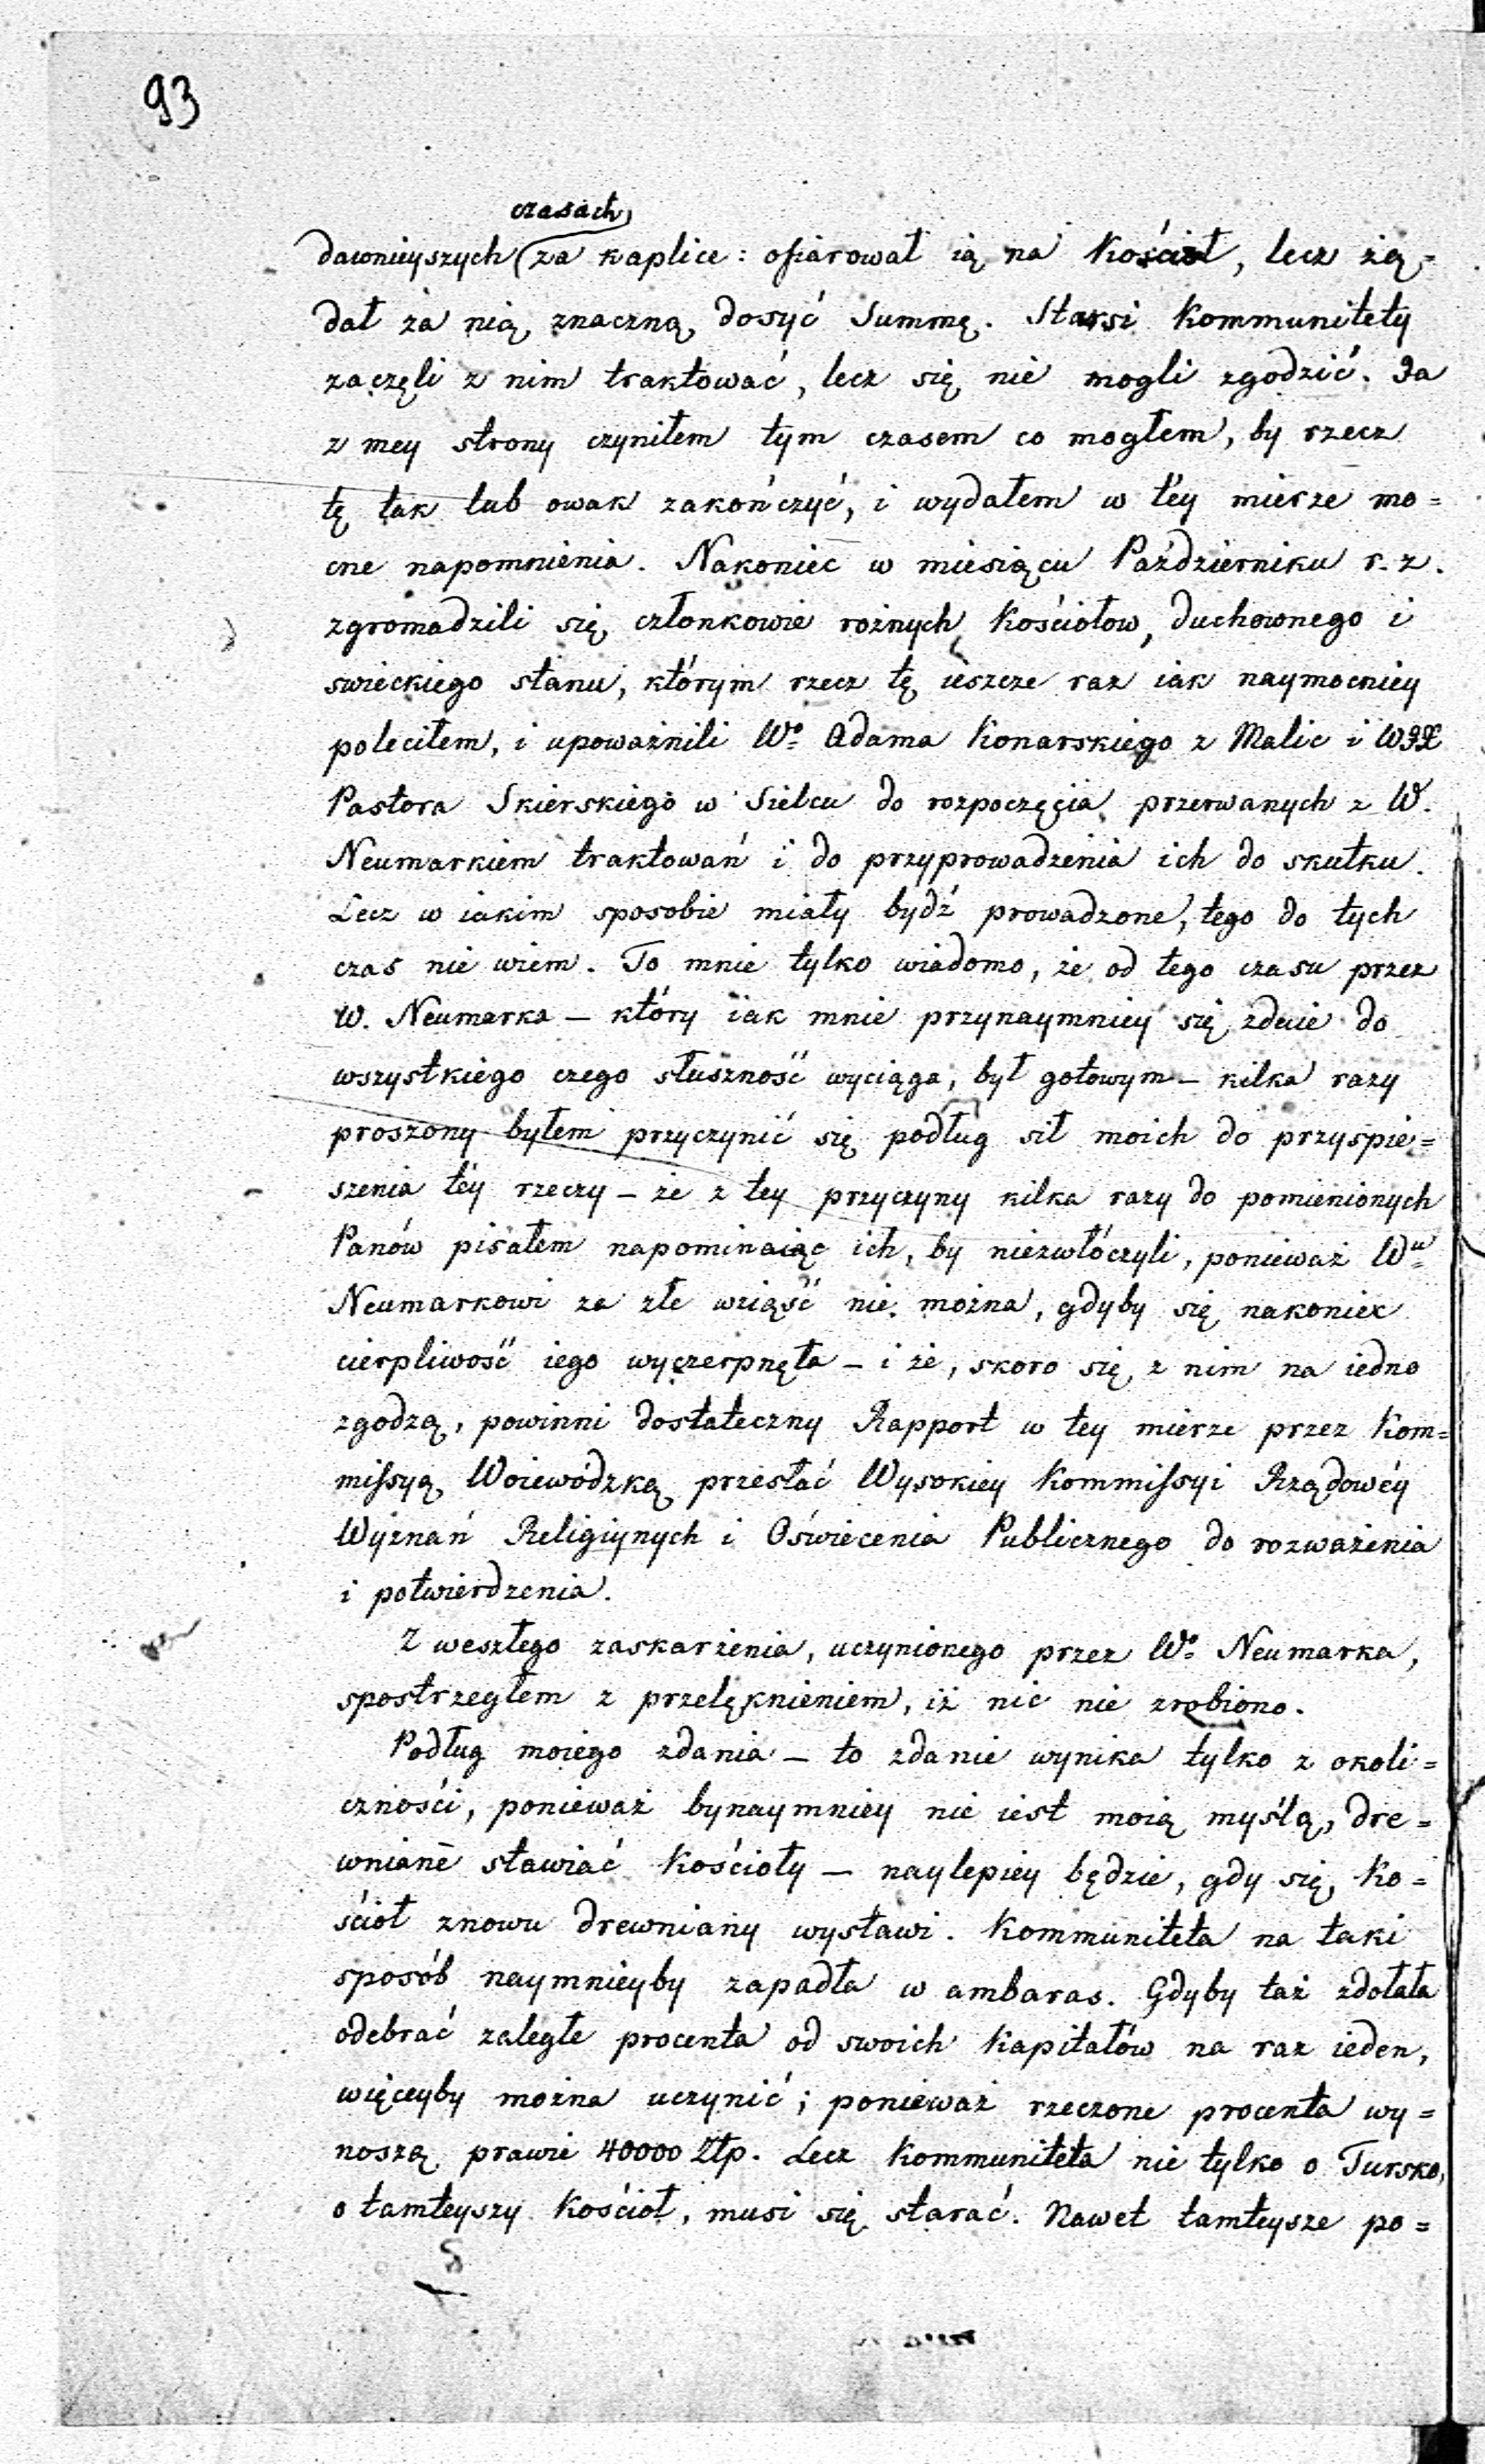 93
czasach
dawnieyszych za kaplice: ofiarował ią na Kościół, lecz żą=
dał za nią znaczną dosyć Summę. Starsi Kommunitety
zaczęli z nim traktować, lecz się nie mogli zgodzić. Ja
z mey strony czyniłem tym czasem co mogłem, by rzecz
tę tak lub owak zakończyć, i wydałem w téy mierze mo=
cne napomnienia. Nakoniec w miesiącu Październiku r. z.
zgromadzili się członkowie rożnych Kościołow, duchownego i
swieckiego stanu, którym rzecz tę ieszcze raz iak naymocniey
poleciłem, i upoważnili Wo. Adama Konarskiego z Malic i WJX
Pastora Skierskiego w Sielcu do rozpoczęcia przerwanych z W.
Neumarkiem traktowań i do przyprowadzenia ich do skutku.
Lecz w iakim sposobie miały bydź prowadzone, tego do tych
czas nie wiem. To mnie tylko wiadomo, że od tego czasu przez
W. Neumarka – który iak mnie przynaymniey się zdaie do
wszystkiego czego słuszność wyciąga, był gotowym – kilka razy
proszony byłem przyczynić się podług sił moich do przyspie=
szenia téy rzeczy – że z tey przyczyny kilka razy do pomienionych
Panów pisałem napominaiąc ich, by niezwłóczyli, ponieważ Wu
Neumarkowi za złe wziąść nie można, gdyby się nakoniec
cierpliwość iego wyczerpnęła – i że, skoro się z nim na iedno
zgodzą, powinni dostateczny Rapport w tey mierze przez Kom=
missyą Woiewódzką przesłać Wysokiey Kommissyi Rządowéy
Wyznań Religiynych i Oświecenia Publicznego do rozważenia
i potwierdzenia.
Z weszłego zaskarżenia, uczynionego przez Wo. Neumarka,
spostrzegłem z przelęknieniem, iż nic nie zrobiono.
Podług moiego zdania – to zdanie wynika tylko z okoli=
czności, ponieważ bynaymniey nie iest moią myślą, dre=
wniane stawiać Kościoły – naylepiey będzie, gdy się Ko=
ściół znowu drewniany wystawi. Kommuniteta na taki
sposób naymnieyby zapadła w ambaras. Gdyby taż zdołała
odebrać zaległe procenta od swoich Kapitałów na raz ieden,
więceyby można uczynić; ponieważ rzeczone procenta wy=
noszą prawie 40000 Złp. Lecz Kommuniteta nie tylko o Tursko,
o tamteyszy Kościoł, musi się starać. Nawet tamteysze po=